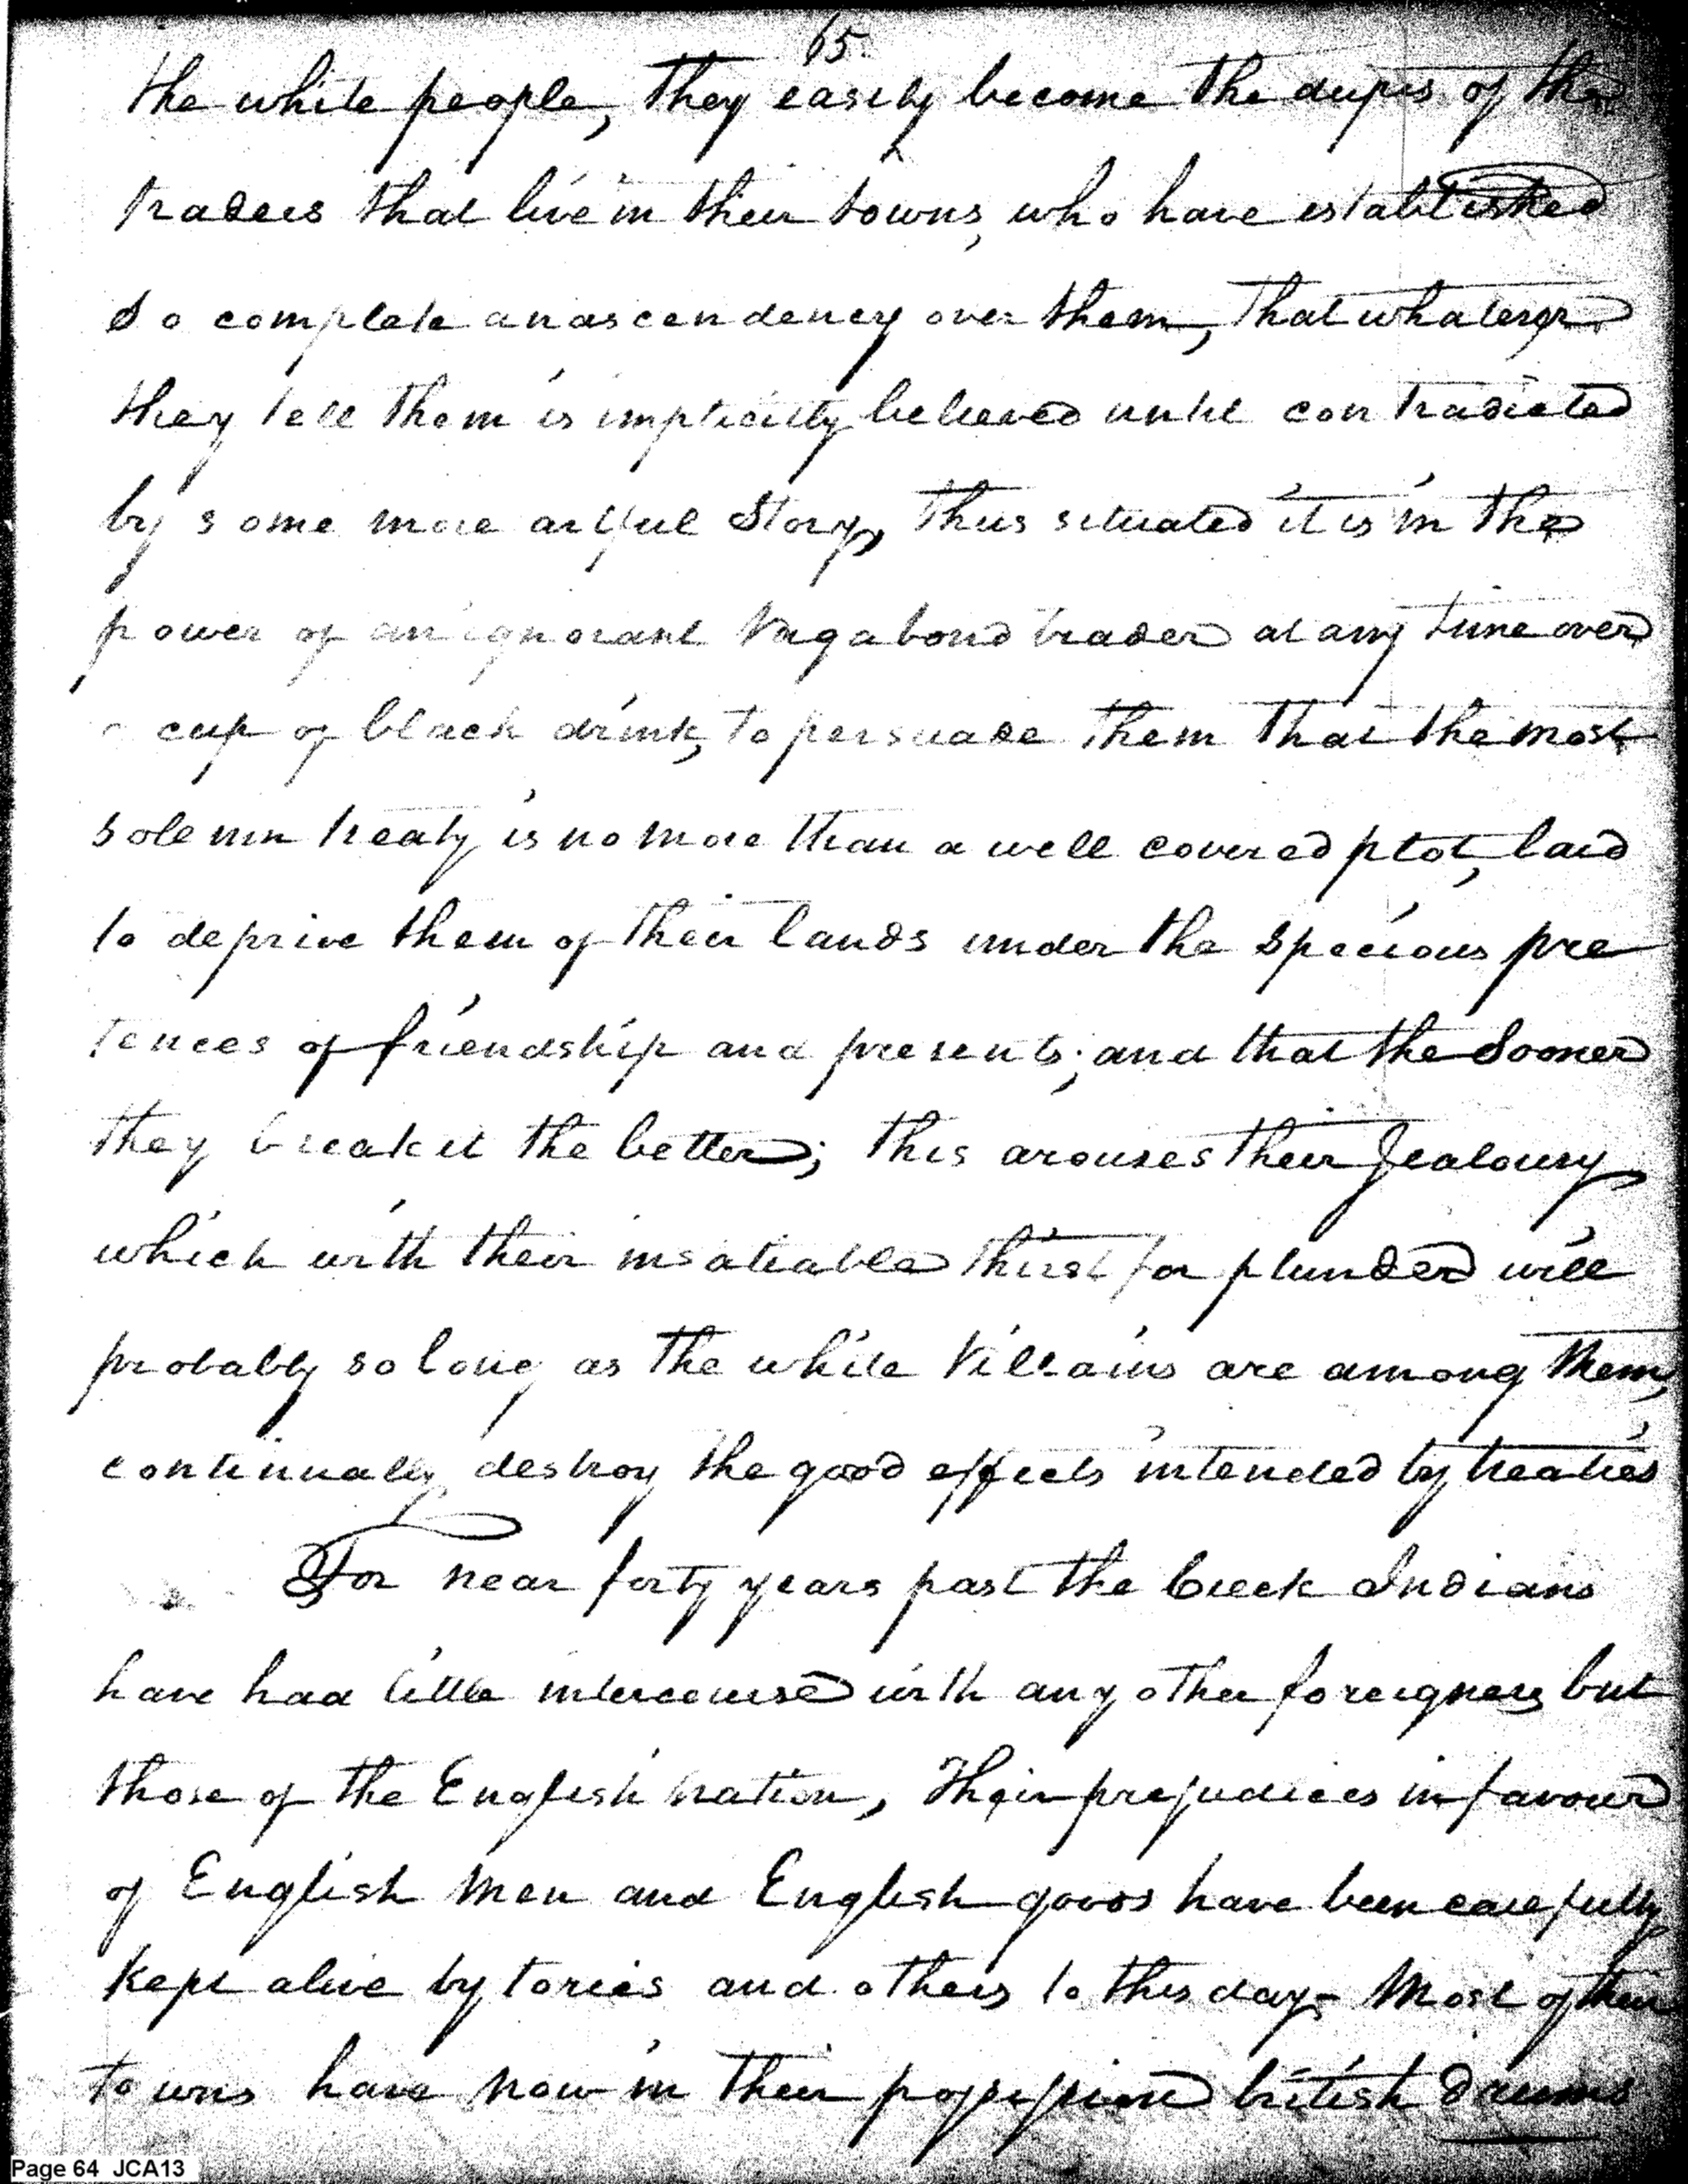 65.
the white people, they easily become the dupes of the
traders that live in their towns, who have established
so complete an ascendency over them, that whatever
they tell them is implicitly believed until contradicted
by some more artful Story, Thus situated it is in the
power of an ignorant Vagabond trader at any time over
a cup of black drink, to persuade them that the most
solemn treaty is no more than a well covered plot, laid
to deprive them of their lands under the specious pre
tences of friendship and presents; and that the Sooner
they break it the better; this arouses their Jealousy
which with their insatiable thirst for plunder will
probably so long as the white Villains are among them,
continually destroy the good effects intended by treaties
For near forty years past the Creek Indians
have had little intercourse with any other foreigners but
those of the English nation, Their prejudices in favour
of English men and English goods have been carefully
Kept alive by tories and others to this day - Most of their
towns have now in their possession british drums
Page 64 JCA13